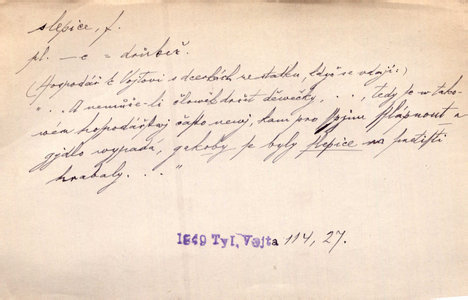 slepice, f.
pl. – c = drůbež.
(Hospodář k Vojtovi o dcerkách ze statku, když se vdají:)
"... A nemůže-li člověk držet děwečky, ..., tedy je w tako-
wém hospodářstwj často newj, kam pro sljpnost a
gjdlo wypadá, gakoby se byly slepice na pastišti
hrabaly. ..."
1849 Tyl, Vojta 114, 27.